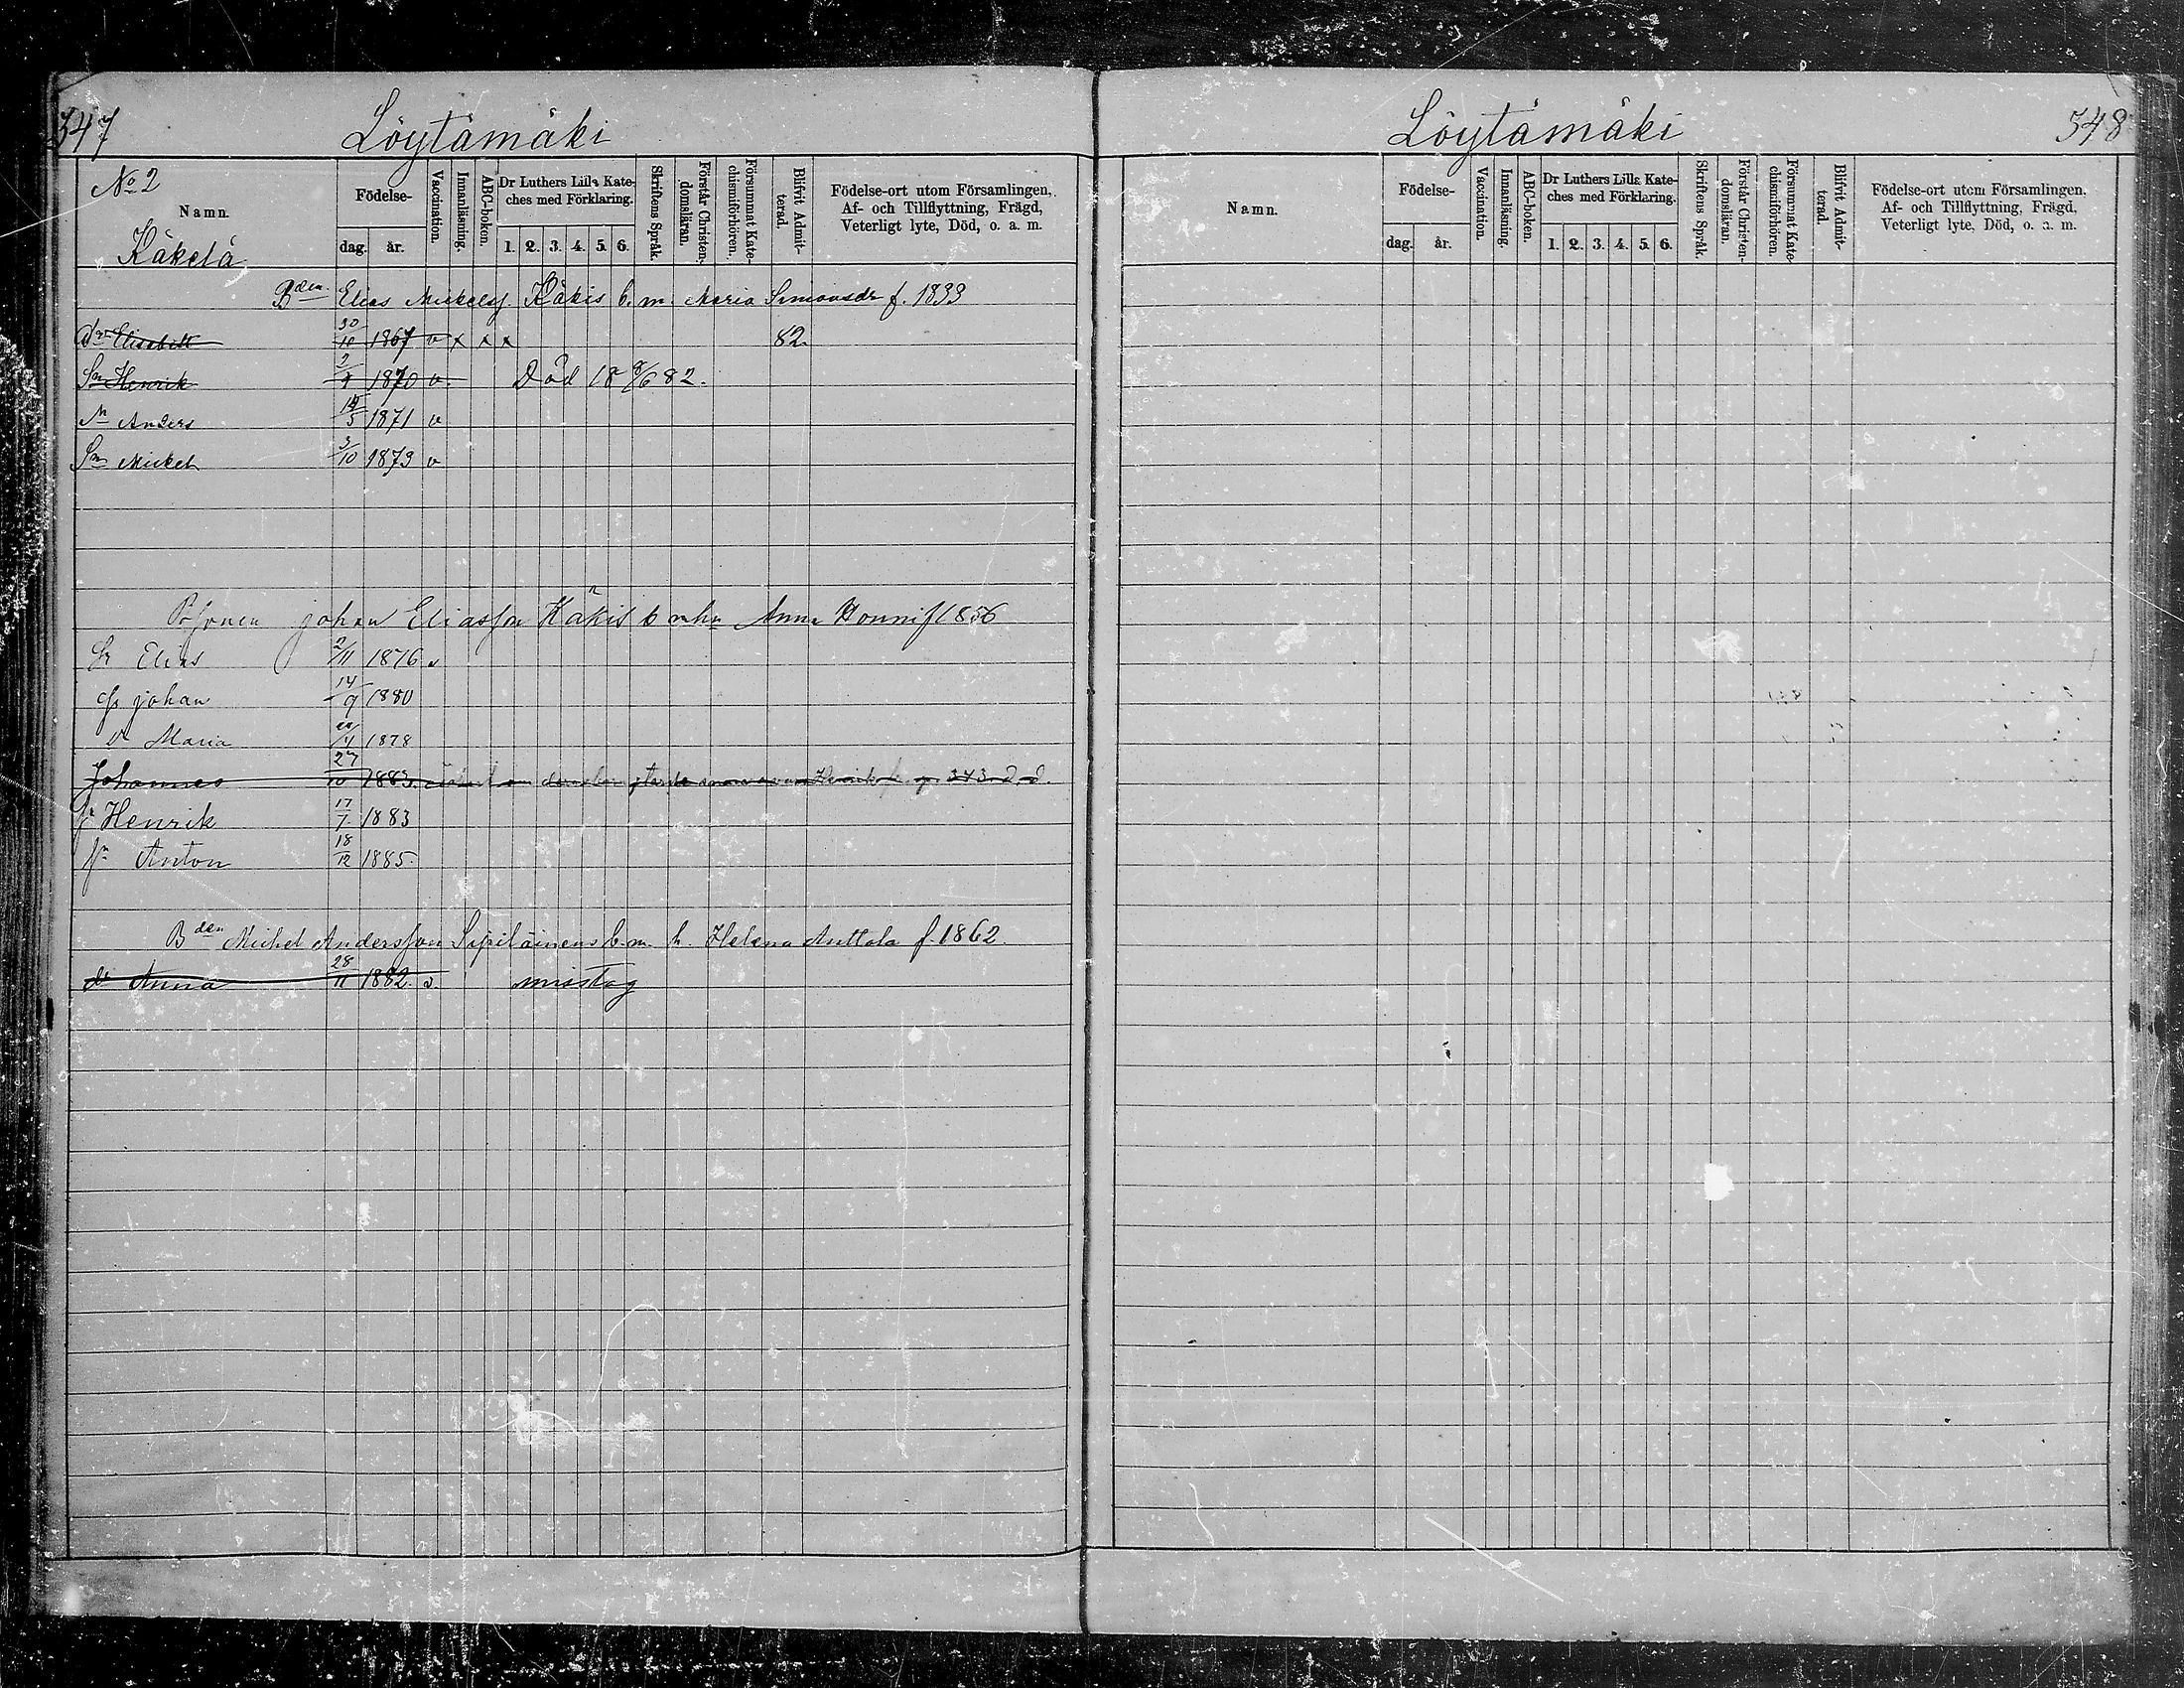 347
Löytämäki
No 2
Namn.
Käkelä
Födelse-
dag.
år.
Vaccination.
Innanläsning.
ABC-boken.
Dr Luthers Lilla Kate-
ches med Förklaring.
1. 2. 3. 4. 5. 6.
Skriftens Språk.
Förstår Christen-
domsläran.
Försummat Kate-
chismiförhören.
Blifvit Admit-
terad.
Födelse-ort utom Församlingen,
Af- och Tillflyttning, Frägd,
Veterligt lyte, Död, o. a. m.
Bden Elias Mickelss. Käkis b. m. Maria Simonsdr f. 1833
dr Elisabett 30/10 1867 v x x x 82.
Sn Henrik 2/4 1870 v. Död 18 /6 82.
Sn Anders 14/5 1871 v
Sn Mickel 3/10 1873 v
johan Eliasson Käkis b m hu Anna Honni f 1856
Sn Elias 2/11 1876 v
Sn johan 14/9 1880
Dr Maria 1878
Johannes 27/10 1883. Henrik p. 343
Sn Henrik 17/7 1883
Sn Anton 18/12 1885.
Bden Michel Andersson Sipiläinens b. m. h. Helena Anttola f. 1862.
dr Anna 28/11 1882. v. misstag
Löytämäki
348
Namn.
Födelse-
dag.
år.
Vaccination.
Innanläsning.
ABC-boken.
Dr Luthers Lilla Kate-
ches med Förklaring.
1. 2. 3. 4. 5. 6.
Skriftens Språk.
Förstår Christen-
domsläran.
Försummat Kate-
chismiförhören.
Blifvit Admit-
terad.
Födelse-ort utom Församlingen,
Af- och Tillflyttning, Frägd,
Veterligt lyte, Död, o. a. m.